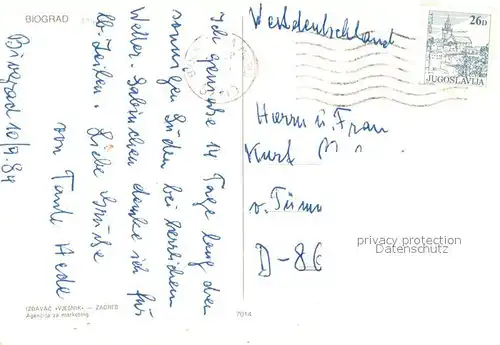 BIOGRAD
Biograd 10/9.84
Ich genieße 14 Tage lang den
sonnigen Süden bei herrlichem
Wetter. Gabinchen danke ich für
lb. Zeilen. Liebe Grüße
von Tante Hede
IZDAVAČ »VJESNIK« — ZAGREB
Agencija za marketing
7014
Westdeutschland
26D
JUGOSLAVIJA
Herrn u. Frau
Kurt
D-86
privacy protection
Datenschutz